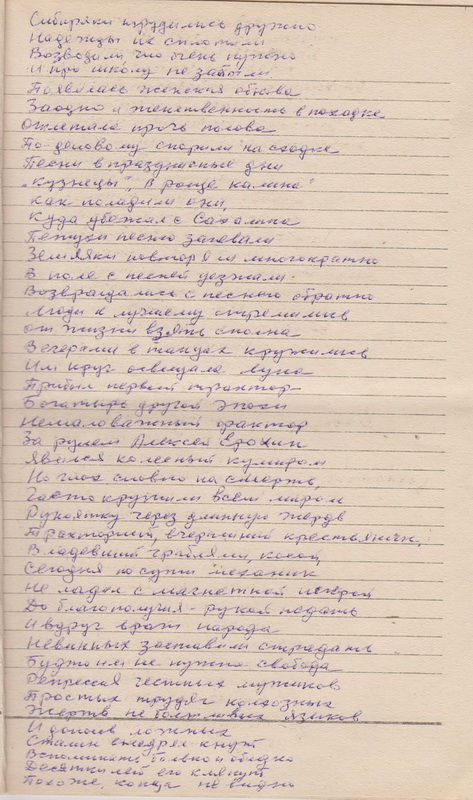 Сибиряки трудились дружно
Надежды их сплотили
Возводили, что очень нужно
И про школу не забыли
Появилась женская обнова
Заодно и женственность в походке
Отлетала прочь полова
По-деловому спорили на сходке
Песни в праздничные дни
"Кузнецы", "В роще калина"
Как поладили они,
Куда убежал с Сахалина
Петухи песню запевали
Земляки повторяли многократно
В поле с песней уезжали.
Возвращались с песней обратно
Люди к лучшему стремились
От жизни взять сполна
Вечерами в танцах кружились
Им круг освещала луна
Прибыл первый трактор
Богатырь другой эпохи
Немаловажный фактор
За рулем Алексей Ерохин
Явился колесный кумиром
Но глох словно на смерть,
Часто крутили всем миром
Рукоятку через длинную жердь
Тракторист, вчерашний крестьянин,
Владевший граблями, косой
Сегодня по сути механик
Не ладил с магнетной искрой
До благополучия - рукой подать
И вдруг враги народа
Невинных заставили страдать
Будто им не нужна свобода
Репрессия честных мужиков
Простых трудяг колхозных
Жертв не болтливых языков
И доносов ложных
Сталин внедрял кнут
Вспоминать больно и обидно
Десятки лет его клянут
Похоже, конца не видно